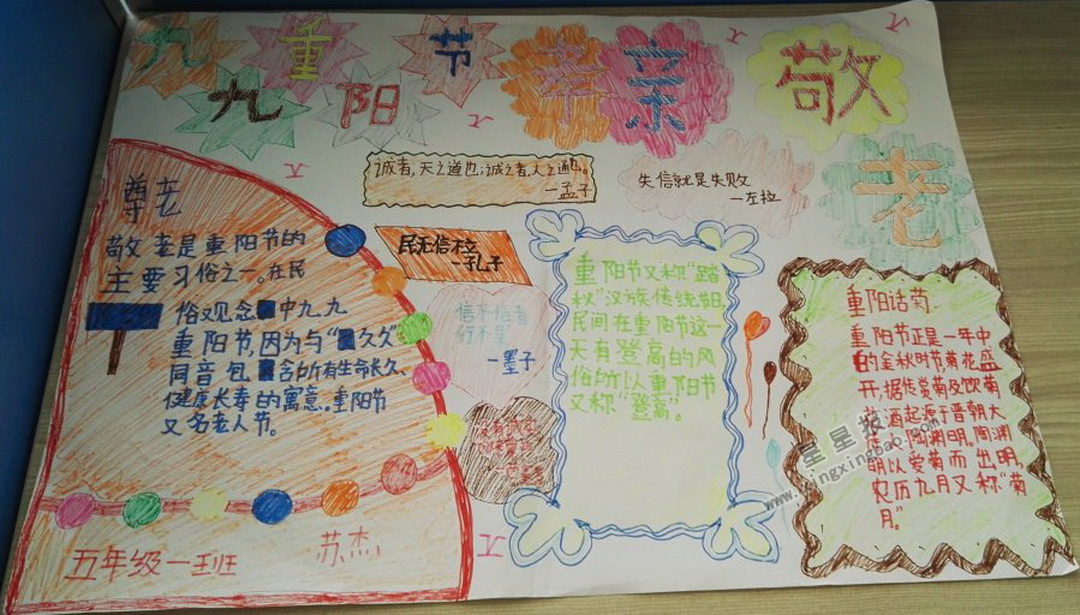 九 重 节 孝 亲 敬
九 阳
老
诚者,天之道也;诚之者,人之道也。
—孟子
失信就是失败
—左拉
民无信不立
—孔子
信不信者
行不果
—墨子
尊老
敬老是重阳节的
主要习俗之一。在民
俗观念中九九
重阳节,因为与“久久”
同音包含所有生命长久、
健康长寿的寓意。重阳节
又名老人节。
五年级一班
苏杰
重阳节又称“踏
秋”汉族传统节日,
民间在重阳节这一
天有登高的风
俗所以重阳节
又称“登高”。
重阳话菊:
重阳节正是一年中
的金秋时节,菊花盛
开,据传赏菊及饮菊
花酒起源于晋朝大
诗人陶渊明。陶渊
明以爱菊而出明,
农历九月又称“菊
月。”
星星报
www.xingxingbao.com